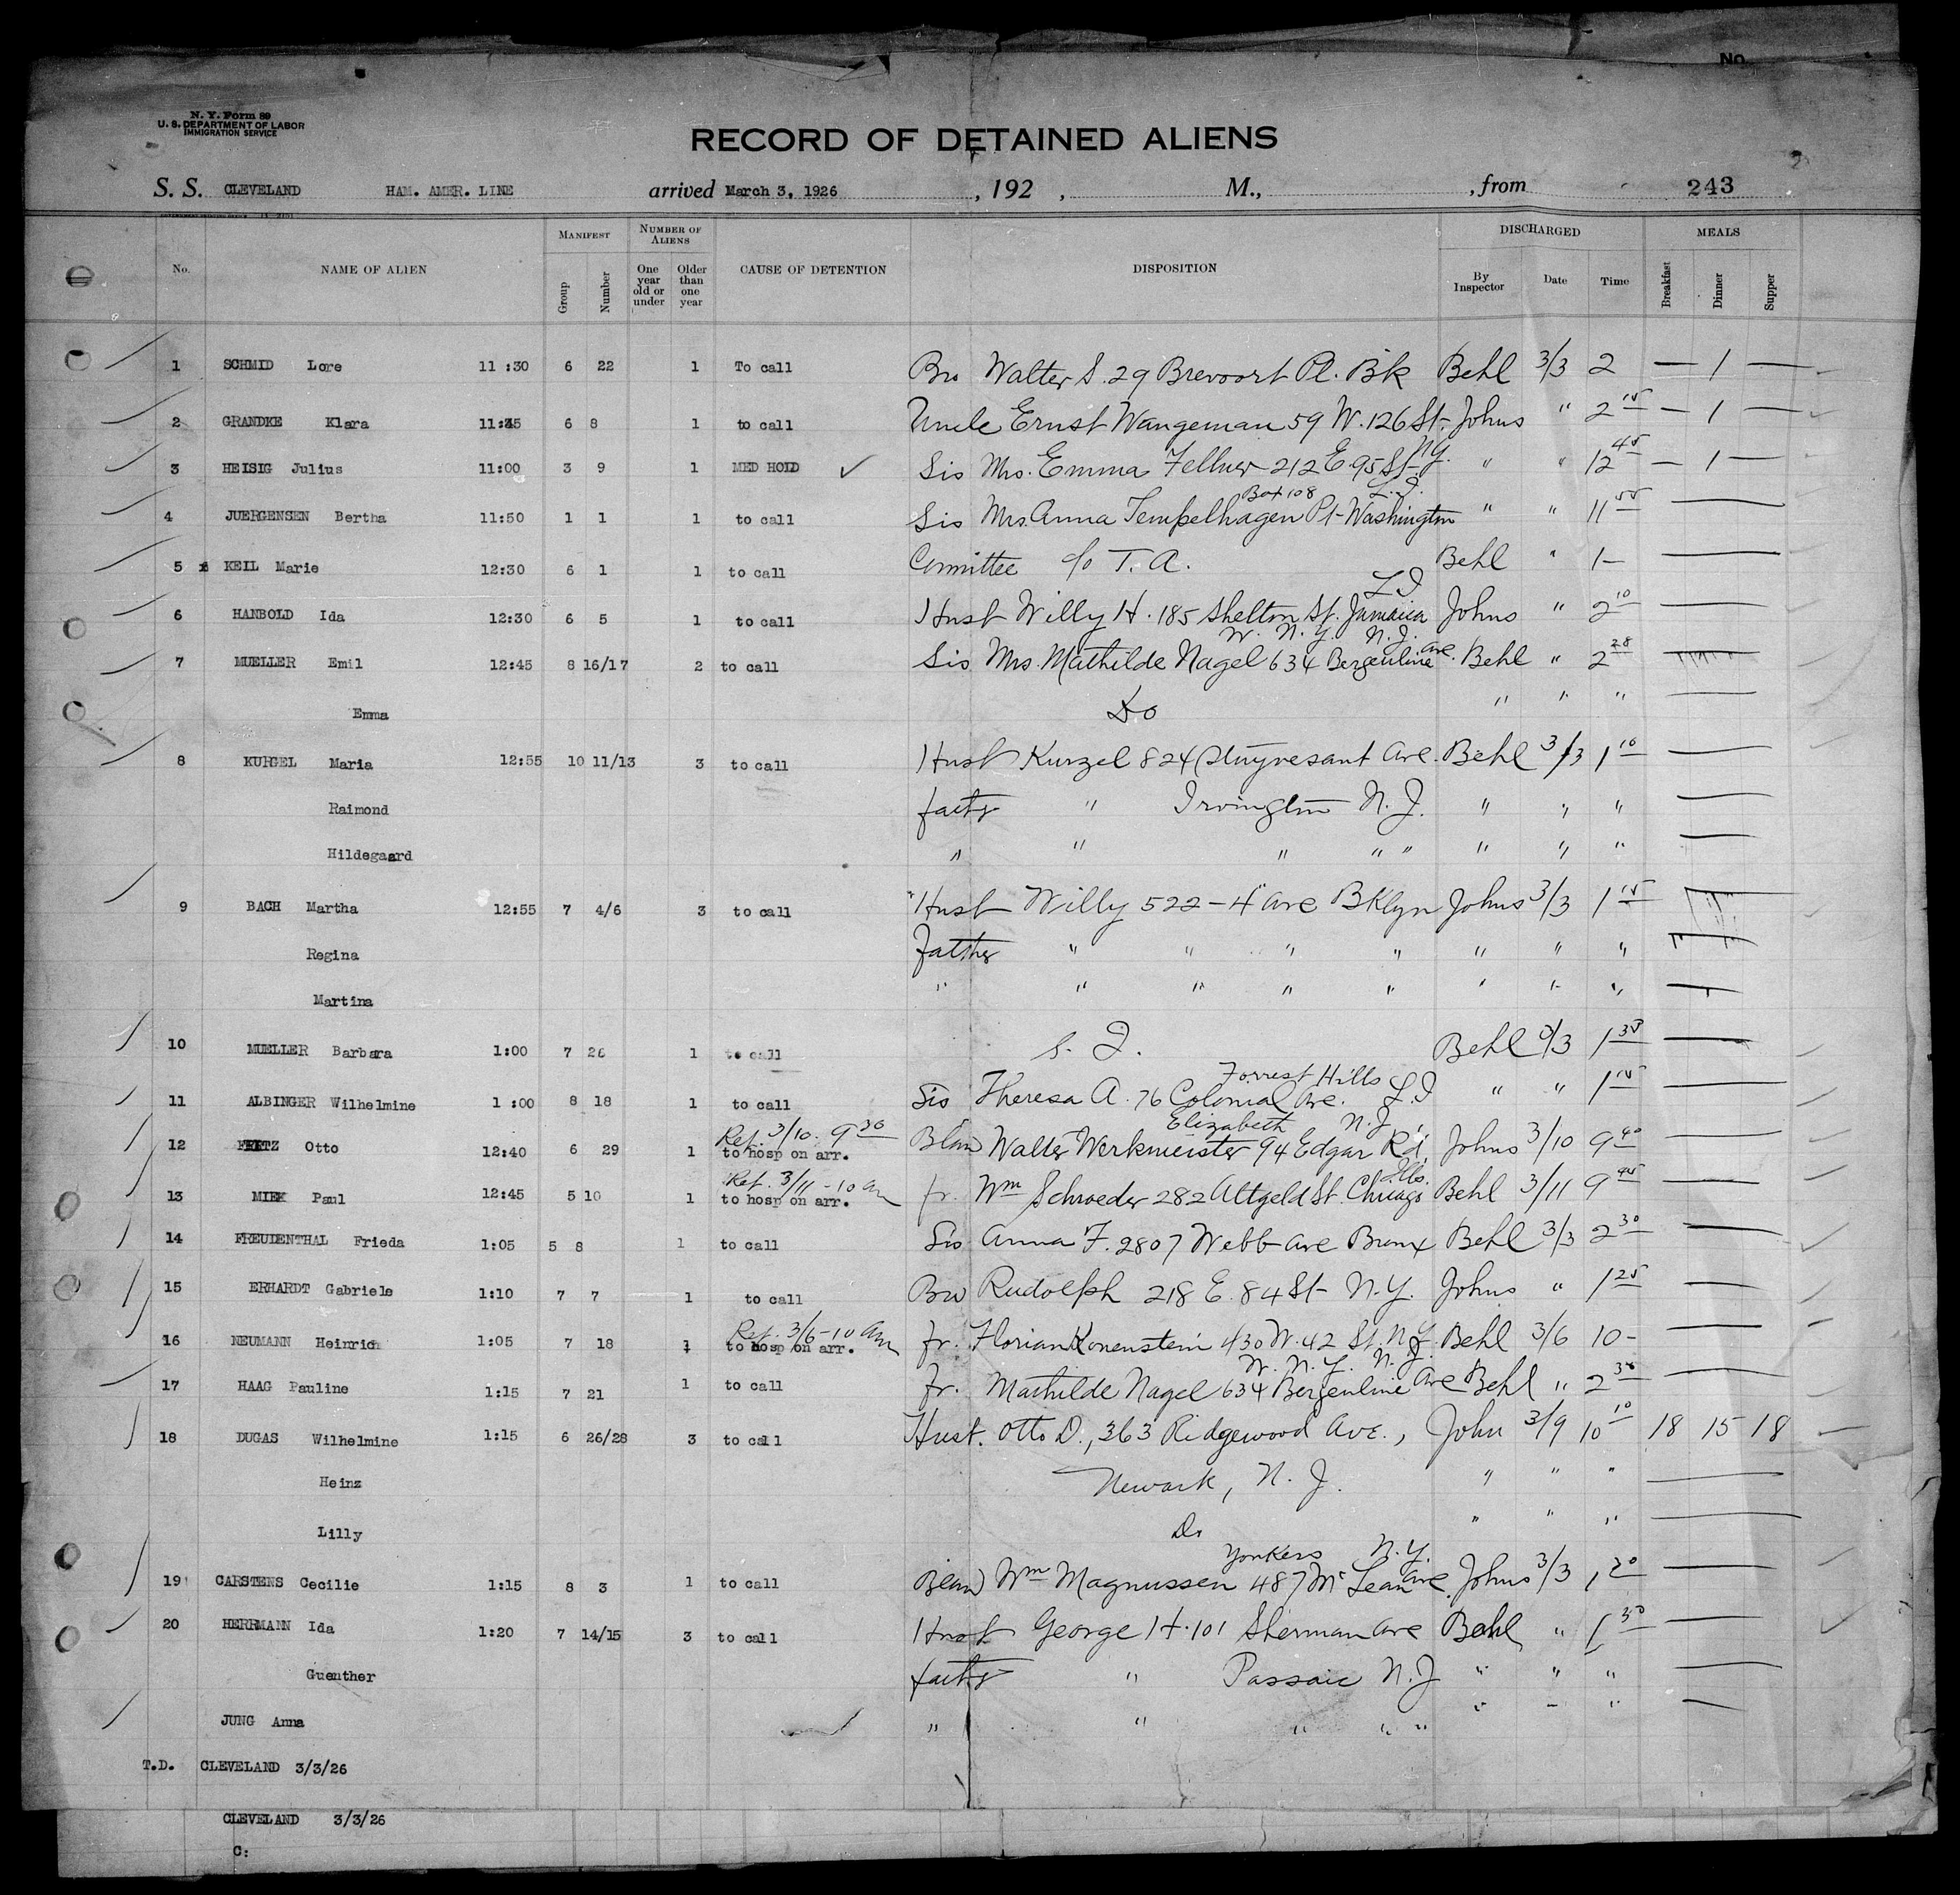 No.
N. Y. Form 89
U. S. DEPARTMENT OF LABOR
IMMIGRATION SERVICE
RECORD OF DETAINED ALIENS
S. S. CLEVELAND HAM. AMER. LINE arrived March 3, 1926 , 192 , M., , from 243
No. NAME OF ALIEN MANIFEST Group Number NUMBER OF ALIENS One year old or under Older than one year CAUSE OF DETENTION DISPOSITION DISCHARGED By Inspector Date Time MEALS Breakfast Dinner Supper
1 SCHMID Lore 11 :30 6 22 1 To call Bro Walter S. 29 Brevoort Pl. Bk Behl 3/3 2 — 1 —
2 GRANDKE Klara 11:45 6 8 1 to call Uncle Ernst Wangeman 59 W. 126 St- Johns " 2 15 — 1 —
3 HEISIG Julius 11:00 3 9 1 MED HOLD ✓ Sis Mrs. Emma Fellner 212 E 95 St- N.Y. " " 12 45 — 1 —
Box 108 L.I.
4 JUERGENSEN Bertha 11:50 1 1 1 to call Sis Mrs. Anna Tempelhagen Pt-Washington " " 11 55 —
5 x KEIL Marie 12:30 6 1 1 to call Committee c/o T. A. Behl " 1- —
L I
6 HANBOLD Ida 12:30 6 5 1 to call Husb Willy H. 185 Shelton St. Jamaica Johns " 2 10 —
W. N. Y. N. J.
7 MUELLER Emil 12:45 8 16/17 2 to call Sis Mrs. Mathilde Nagel 634 Bergenline Ave. Behl " 2 28 —
Emma Do " " " —
8 KURGEL Maria 12:55 10 11/13 3 to call Husb Kurzel 824 Stuyvesant Ave. Behl 3/3 1 10 —
Raimond fath " Irvington N. J. " " " —
Hildegaard " " " " " " " " —
9 BACH Martha 12:55 7 4/6 3 to call Husb Willy 522-4" Ave Bklyn Johns 3/3 1 15 —
Regina father " " " " " " " —
Martina " " " " " " " " —
10 MUELLER Barbara 1:00 7 26 1 to call S. I. Behl 3/3 1 35 —
Forrest Hills
11 ALBINGER Wilhelmine 1 :00 8 18 1 to call Sis Theresa A. 76 Colonial Ave. L.I " " 1 15 —
Ref. 3/10. 9 30 Elizabeth N. J.
12 Otto 12:40 6 29 1 to hosp on arr. Blaw Walter Werkmeister 94 Edgar Rd. Johns 3/10 9 40 —
Ref. 3/11 - 10 am Ills.
13 MIEK Paul 12:45 5 10 1 to hosp on arr. fr. Wm Schroeder 282 Altgeld St. Chicago Behl 3/11 9 45 —
14 FREUDENTHAL Frieda 1:05 5 8 1 to call Sis Anna F. 2807 Webb Ave Bronx Behl 3/3 2 30 —
15 ERHARDT Gabriele 1:10 7 7 1 to call Bro Rudolph 218 E. 84 St- N.Y. Johns " 1 25 —
Ref. 3/6 - 10 am
16 NEUMANN Heinrich 1:05 7 18 1 to hosp on arr. fr. Florian Konenstein 430 W. 42 St. N.Y. Behl 3/6 10- —
W. N. Y. N. J.
17 HAAG Pauline 1:15 7 21 1 to call fr. Mathilde Nagel 634 Bergenline Ave Behl " 2 —
18 DUGAS Wilhelmine 1:15 6 26/28 3 to call Husb. Otto D., 363 Ridgewood Ave., John 3/9 10 10 18 15 18 —
Heinz Newark, N. J. " " " —
Lilly Do " " " —
Yonkers N.Y.
19 CARSTENS Cecilie 1:15 8 3 1 to call Blaw Wm Magnussen 487 Mc Lean Ave. Johns 3/3 1 20 —
20 HERRMANN Ida 1:20 7 14/15 3 to call Husb George H. 101 Sherman Ave Behl " 1 30 —
Guenther fath " Passaic N. J " " " —
JUNG Anna " " " " " " - " —
T.D. CLEVELAND 3/3/26
CLEVELAND 3/3/26
C: